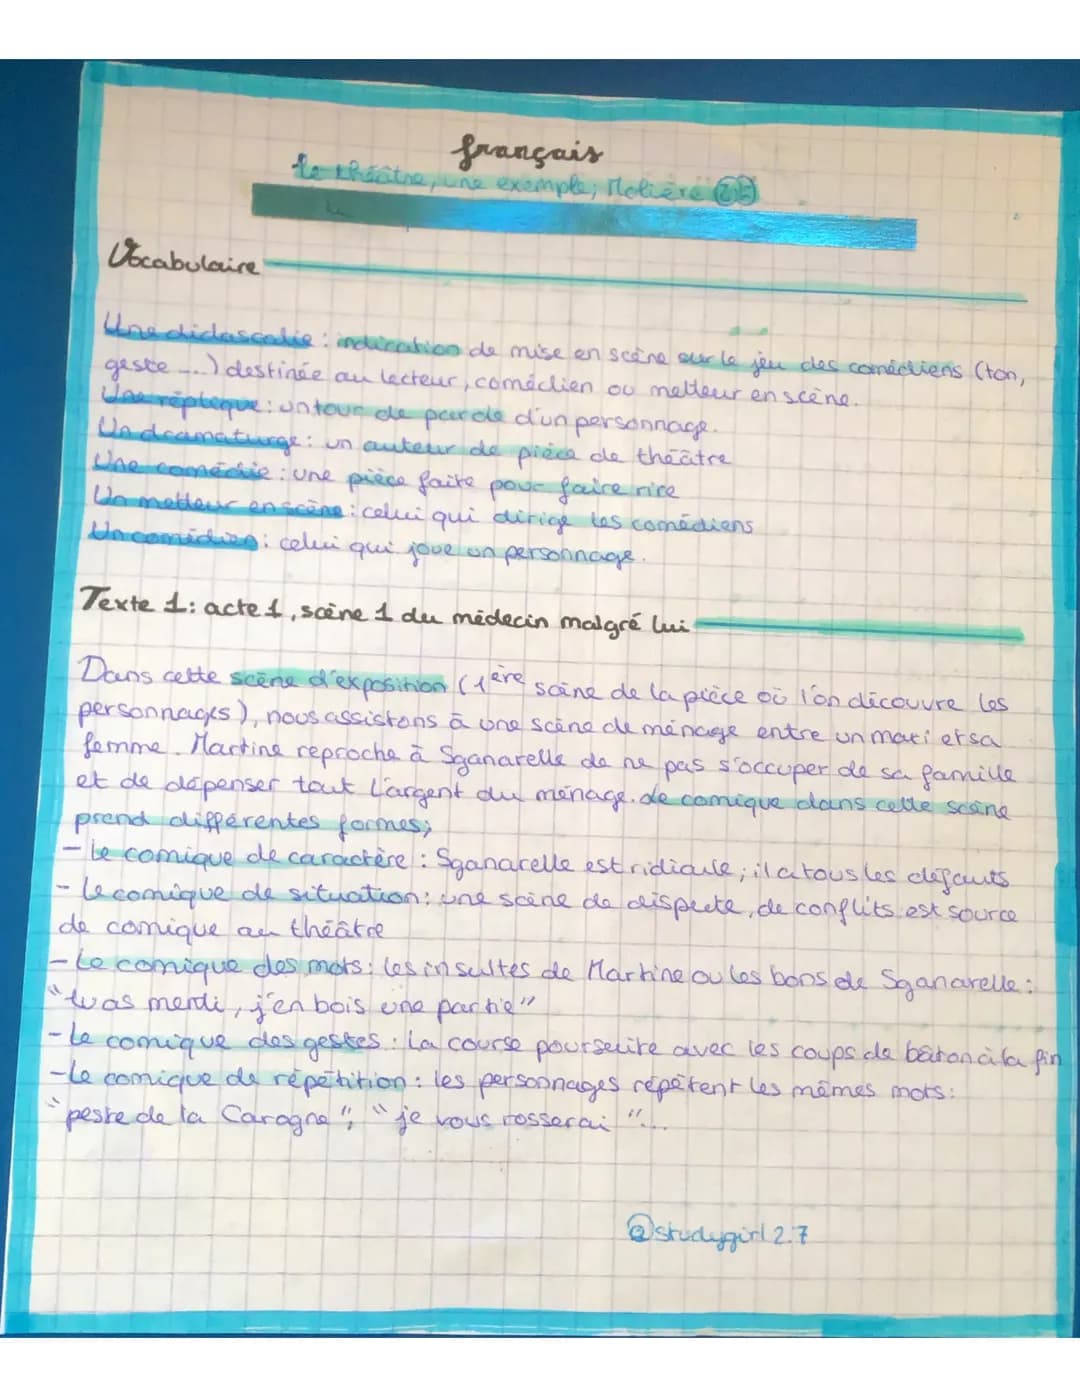 français
le théâtre, une exemple; Molière
Vocabulaire
Une didascalie : indication de mise en scène sur le jeu des comédiens (ton,
geste ...) destinée au lecteur, comédien ou metteur en scène.
Une réplique : un tour de parole d'un personnage.
Un dramaturge : un auteur de pièce de théâtre
Une comédie : une pièce faite pour faire rire
Un metteur en scène : celui qui dirige les comédiens
Un comédien : celui qui joue un personnage.
Texte 1 : acte 1, scène 1 du médecin malgré lui
Dans cette scène d'exposition (1ère scène de la pièce où l'on découvre les
personnages), nous assistons à une scène de ménage entre un mari et sa
femme. Martine reproche à Sganarelle de ne pas s'occuper de sa famille
et de dépenser tout l'argent du ménage. Le comique dans cette scène
prend différentes formes;
- Le comique de caractère : Sganarelle est ridicule ; il a tous les défauts
- Le comique de situation : une scène de dispute, de conflits est source
de comique au théâtre
- Le comique des mots : les insultes de Martine ou les bons de Sganarelle :
"tu as menti, j'en bois une partie"
- Le comique des gestes : La course poursuite avec les coups de bâton à la fin
- Le comique de répétition : les personnages répètent les mêmes mots :
"peste de la Carogne", "je vous rosserai"...
@studygirl2.7